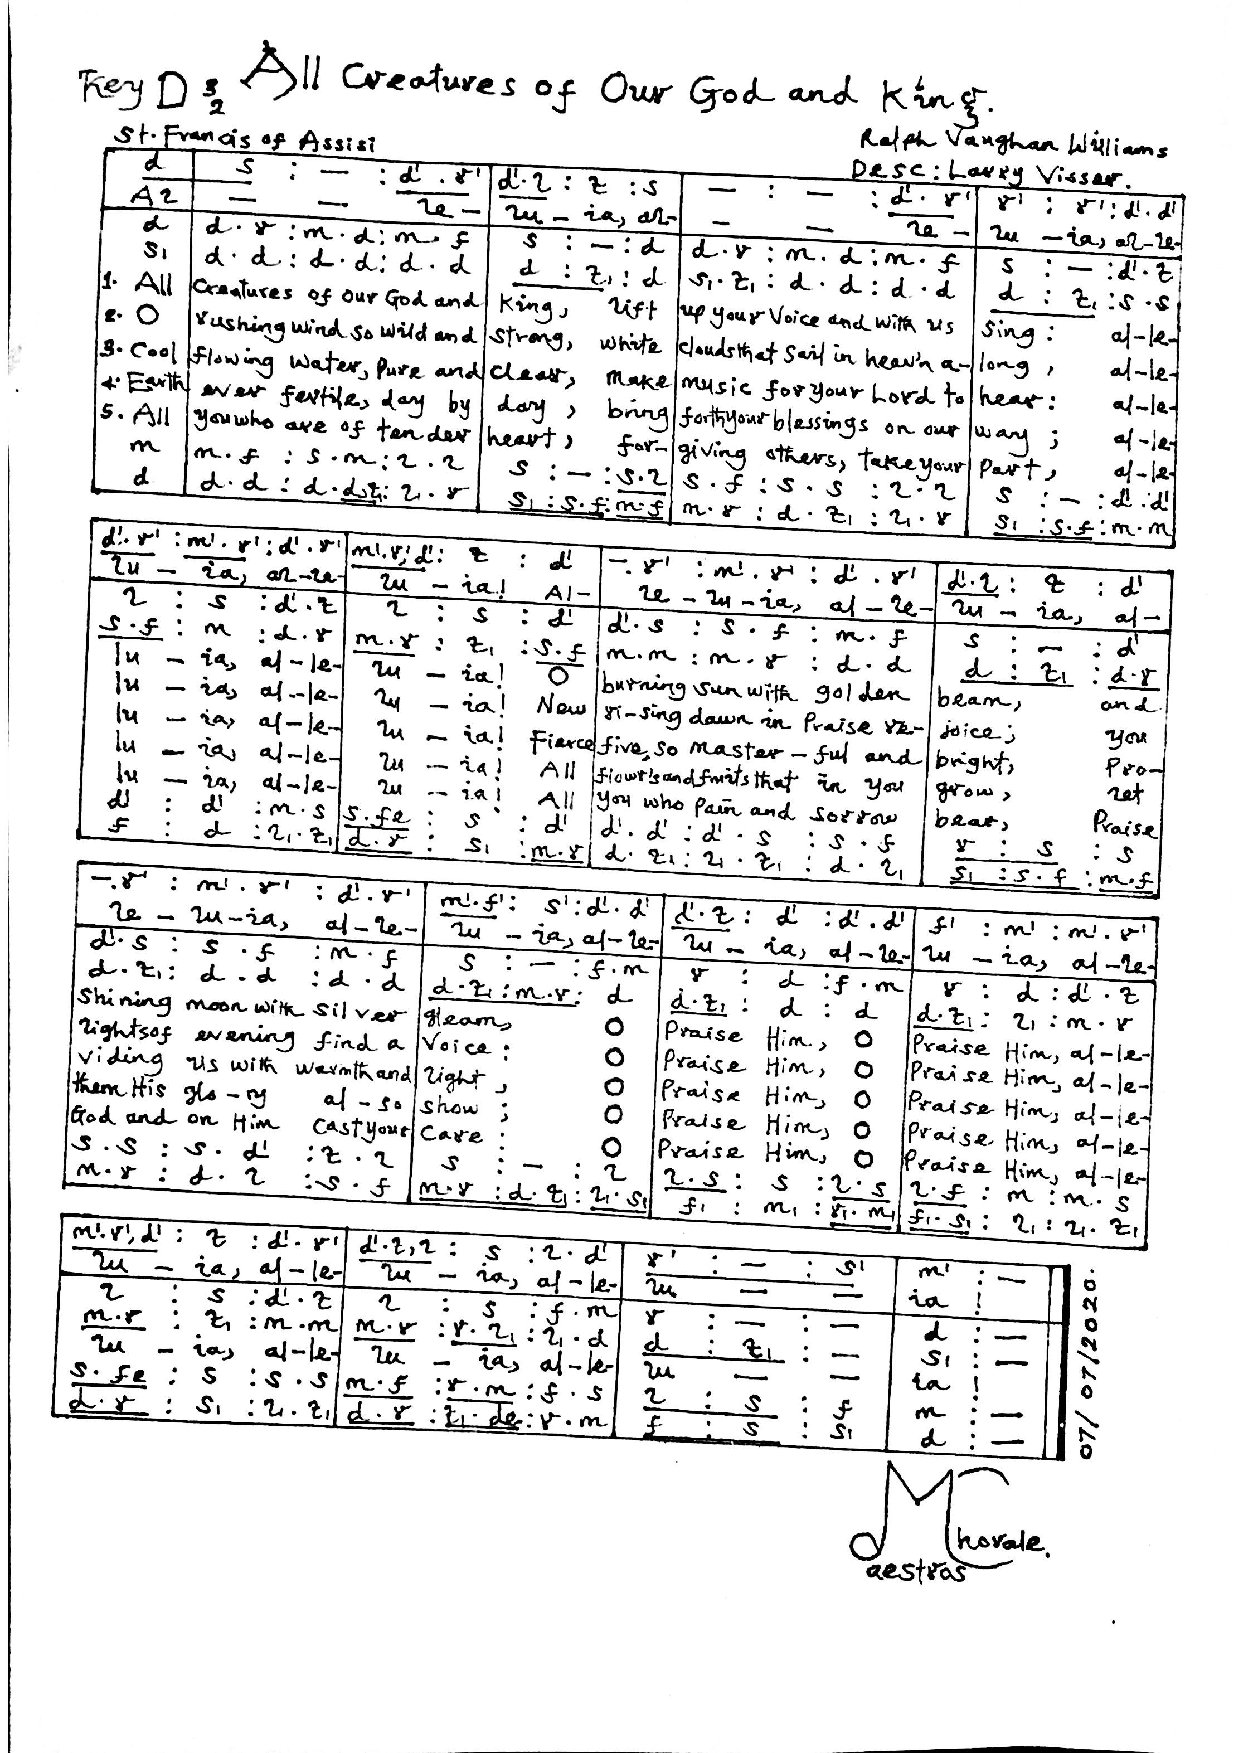 Key D 3/2 All Creatures of Our God and King.
St. Francis of Assisi Ralph Vaughan Williams
Desc: Larry Visser.
d | s : — : d'. r' | d'. l : t : s | — : — : d'. r' | r' : r' : d'. d'
Al | — — le – | lu – ia, al- | – — le – | lu – ia, al-le-
d | d . r : m . d : m . f | s : — : d | d . r : m . d : m . f | s : — : d'. t
s₁ | d . d : d . d : d . d | d : t₁ : d | s₁ . t₁ : d . d : d . d | d : t₁ : s . s
1. All | Creatures of our God and | King, lift | up your Voice and with us | Sing : al-le-
2. O | rushing wind so wild and | strong, white | clouds that sail in heav'n a- | long , al-le-
3. Cool | flowing water, pure and | clear, make | music for your Lord to | hear : al-le-
4. Earth | ever fertile, day by | day , bring | forth your blessings on our | way ; al-le-
5. All | you who are of tender | heart, for- | giving others, take your | part, al-le-
m | m . f : s . m : l . l | s : — : s . l | s . f : s . s : l . l | s : — : d'. d'
d | d . d : d . d t₁ : l₁ . r | s₁ : s . f : m . f | m . r : d . t₁ : l₁ . r | s₁ : s . f : m . m
d'. r' : m'. r' : d'. r' | m'. r', d' : t : d' | – . r' : m'. r' : d'. r' | d'. l : t : d'
lu – ia, al-le- | lu – ia! Al- | le – lu – ia, al – le- | lu – ia, al –
l : s : d'. t | l : s : d' | d'. s : s . f : m . f | s : — : d'
s . f : m : d . r | m . r : t₁ : s . f | m . m : m . r : d . d | d : t₁ : d . r
lu – ia, al-le- | lu – ia! O | burning sun with golden | beam, and
lu – ia, al-le- | lu – ia! New | ri-sing dawn in Praise re- | joice ; you
lu – ia, al-le- | lu – ia! Fierce | five, so master – ful and | bright, Pro-
lu – ia, al-le- | lu – ia! All | flow'rs and fruits that in you | grow, let
lu – ia, al-le- | lu – ia! All | you who pain and sorrow | bear, Praise
d' : d' : m . s | s . fe : s : d' | d'. d' : d'. s : s . f | r : s : s
f : d : l₁ . t₁ | d . r : s₁ : m . r | d . t₁ : l₁ . t₁ : d . l₁ | s₁ : s . f : m . f
– . r' : m'. r' : d'. r' | m'. f' : s' : d'. d' | d'. t : d' : d'. d' | f' : m' : m'. r'
le – lu – ia, al-le- | lu – ia, al-le- | lu – ia, al-le- | lu – ia, al-le-
d'. s : s . f : m . f | s : — : f . m | r : d : f . m | r : d : d'. t
d . t₁ : d . d : d . d | d . t₁ : m . r : d | d . t₁ : d : d | d . t₁ : l₁ : m . r
Shining moon with silver | gleam, O | Praise Him, O | Praise Him, al-le-
lights of evening find a | Voice : O | Praise Him, O | Praise Him, al-le-
viding us with warmth and | light , O | Praise Him, O | Praise Him, al-le-
them His glo-ry al-so | show ; O | Praise Him, O | Praise Him, al-le-
God and on Him cast your | care : O | Praise Him, O | Praise Him, al-le-
s . s : s . d' : t . l | s : – : l | l . s : s : l . s | l . f : m : m . s
m . r : d . l : s . f | m . r : d . t₁ : l₁ . s₁ | f₁ : m₁ : r₁ . m₁ | f₁ . s₁ : l₁ : l₁ . t₁
m'. r', d' : t : d'. r' | d'. t, l : s : l . d' | r' : — : s' | m' : —
lu – ia, al-le- | lu – ia, al-le- | lu — — | ia !
l : s : d'. t | l : s : f . m | r : — : — | d : —
m . r : t₁ : m . m | m . r : r . l₁ : l₁ . d | d : t₁ : — | s₁ : —
lu – ia, al-le- | lu – ia, al-le- | lu — — | ia :
s . fe : s : s . s | m . f : r . m : f . s | l : s : f | m : —
d . r : s₁ : l₁ . t₁ | d . r : t₁ . de : r . m | f : s : s₁ | d : —
07/07/2020.
Maestros Chorale.